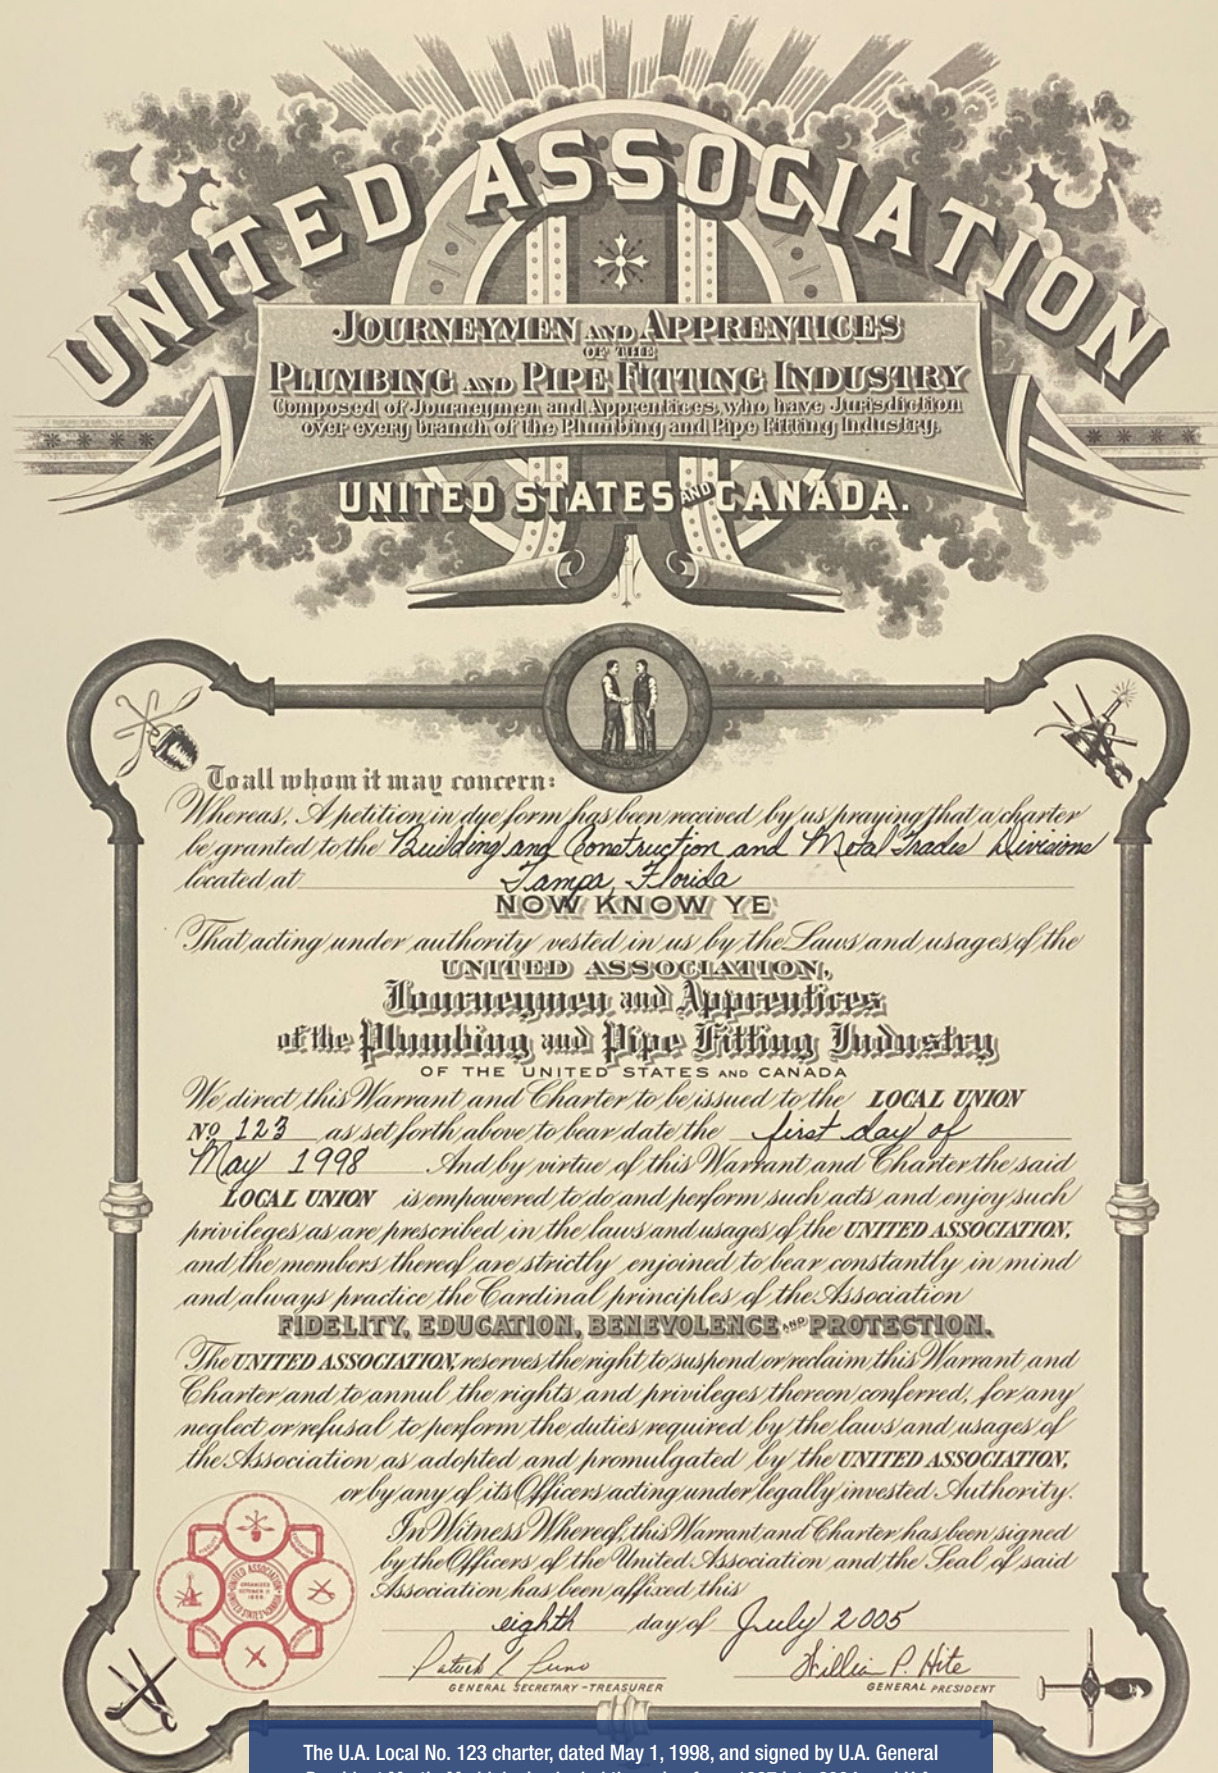 UNITED ASSOCIATION
JOURNEYMEN AND APPRENTICES
OF THE
PLUMBING AND PIPE FITTING INDUSTRY
Composed of Journeymen and Apprentices, who have Jurisdiction
over every branch of the Plumbing and Pipe Fitting Industry.
UNITED STATES AND CANADA.
To all whom it may concern:
Whereas, A petition in dye form has been received by us praying that a charter
be granted to the Building and Construction and Metal Trades Divisions
located at Tampa, Florida
NOW KNOW YE
That acting under authority vested in us by the Laws and usages of the
UNITED ASSOCIATION,
Journeymen and Apprentices
of the Plumbing and Pipe Fitting Industry
OF THE UNITED STATES AND CANADA
We direct this Warrant and Charter to be issued to the LOCAL UNION
No 123 as set forth above to bear date the first day of
May 1998 And by virtue of this Warrant and Charter the said
LOCAL UNION is empowered to do and perform such acts and enjoy such
privileges as are prescribed in the laws and usages of the UNITED ASSOCIATION,
and the members thereof are strictly enjoined to bear constantly in mind
and always practice the Cardinal principles of the Association
FIDELITY, EDUCATION, BENEVOLENCE AND PROTECTION.
The UNITED ASSOCIATION, reserves the right to suspend or reclaim this Warrant and
Charter and to annul the rights and privileges thereon conferred, for any
neglect or refusal to perform the duties required by the laws and usages of
the Association as adopted and promulgated by the UNITED ASSOCIATION,
or by any of its Officers acting under legally invested Authority.
In Witness Whereof, this Warrant and Charter has been signed
by the Officers of the United Association and the Seal of said
Association has been affixed this
eighth day of July 2005
William P. Hite
GENERAL SECRETARY-TREASURER
GENERAL PRESIDENT
UNITED ASSOCIATION
ORGANIZED
OCTOBER 11
1889
UNITED STATES & CANADA
The U.A. Local No. 123 charter, dated May 1, 1998, and signed by U.A. General